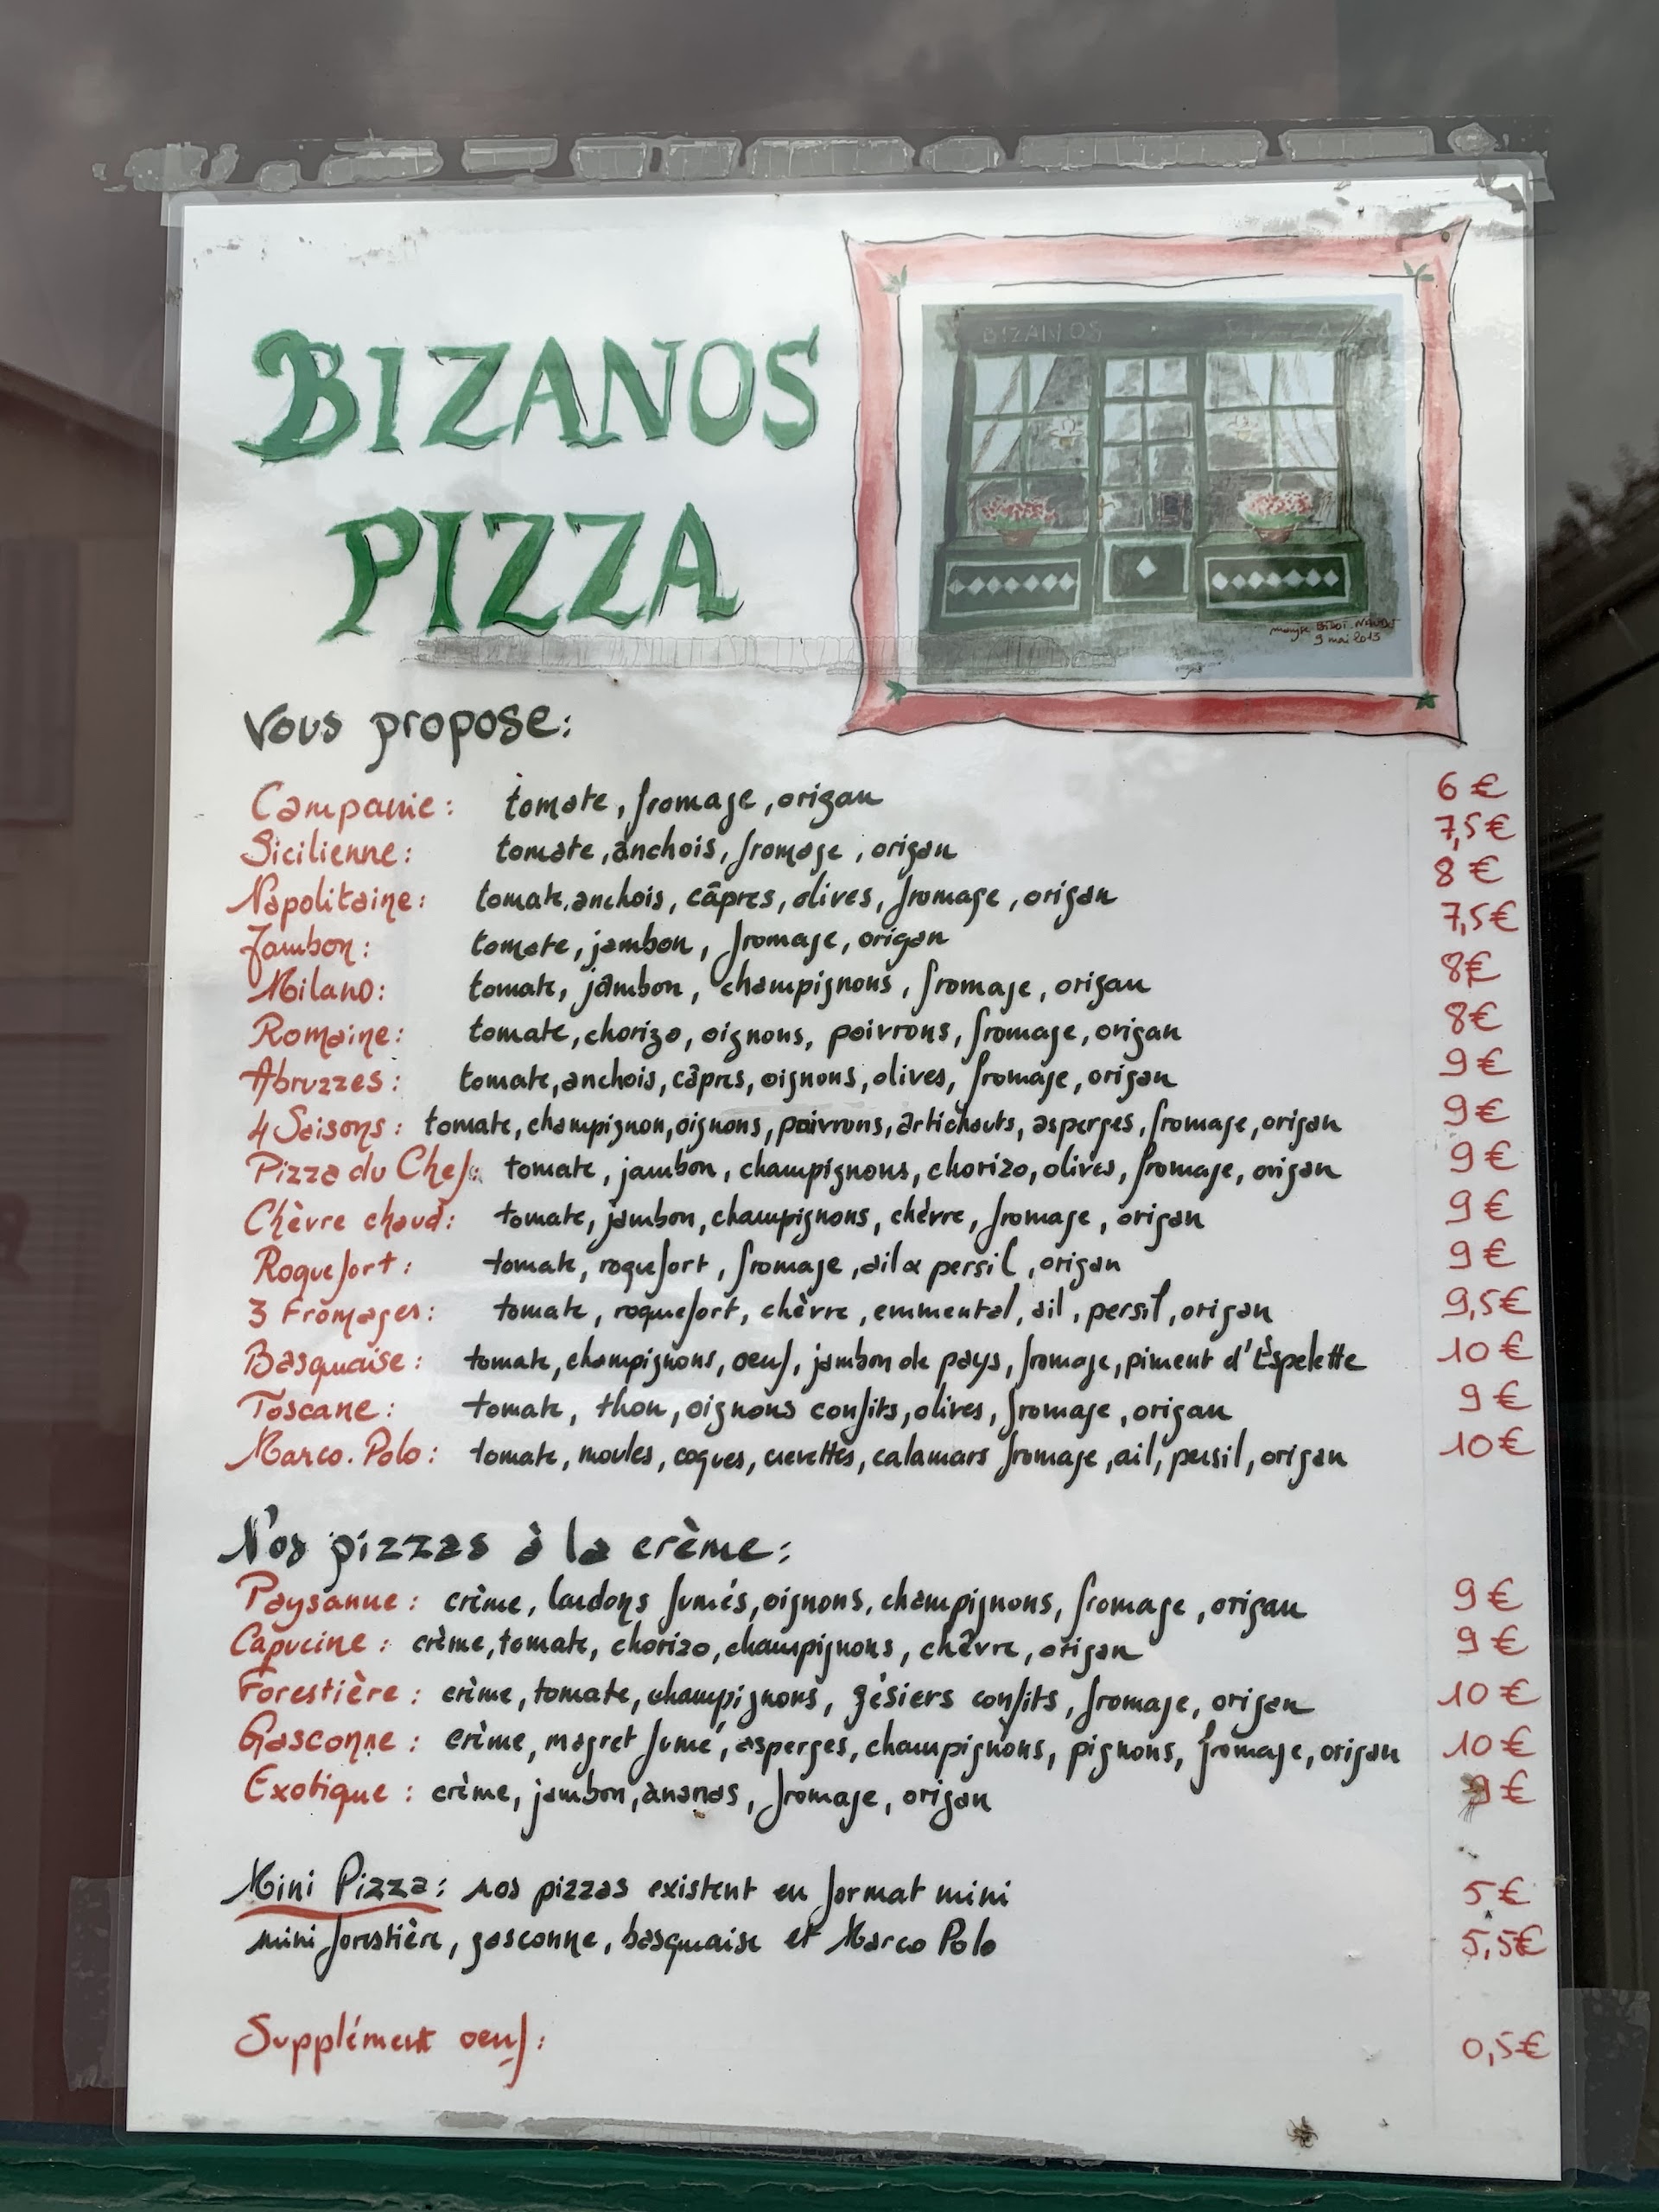 BIZANOS
PIZZA
BIZANOS
9 mai 2013
Vous propose:
Campanie: tomate, fromage, origan 6 €
Sicilienne: tomate, anchois, fromage, origan 7,5 €
Napolitaine: tomate, anchois, câpres, olives, fromage, origan 8 €
Jambon: tomate, jambon, fromage, origan 7,5 €
Milano: tomate, jambon, champignons, fromage, origan 8 €
Romaine: tomate, chorizo, oignons, poivrons, fromage, origan 8 €
Abruzzes: tomate, anchois, câpres, oignons, olives, fromage, origan 9 €
4 Saisons: tomate, champignon, oignons, poivrons, artichauts, asperges, fromage, origan 9 €
Pizza du Chef: tomate, jambon, champignons, chorizo, olives, fromage, origan 9 €
Chèvre chaud: tomate, jambon, champignons, chèvre, fromage, origan 9 €
Roquefort: tomate, roquefort, fromage, ail & persil, origan 9 €
3 Fromages: tomate, roquefort, chèvre, emmental, ail, persil, origan 9,5 €
Basquaise: tomate, champignons, oeuf, jambon de pays, fromage, piment d'Espelette 10 €
Toscane: tomate, thon, oignons confits, olives, fromage, origan 9 €
Marco. Polo: tomate, moules, coques, crevettes, calamars fromage, ail, persil, origan 10 €
Nos pizzas à la crème:
Paysanne: crème, lardons fumés, oignons, champignons, fromage, origan 9 €
Capucine: crème, tomate, chorizo, champignons, chèvre, origan 9 €
Forestière: crème, tomate, champignons, gésiers confits, fromage, origan 10 €
Gasconne: crème, magret fumé, asperges, champignons, pignons, fromage, origan 10 €
Exotique: crème, jambon, ananas, fromage, origan 9 €
Mini Pizza: nos pizzas existent en format mini 5 €
mini forestière, gasconne, basquaise et Marco Polo 5,5 €
Supplément oeuf: 0,5 €